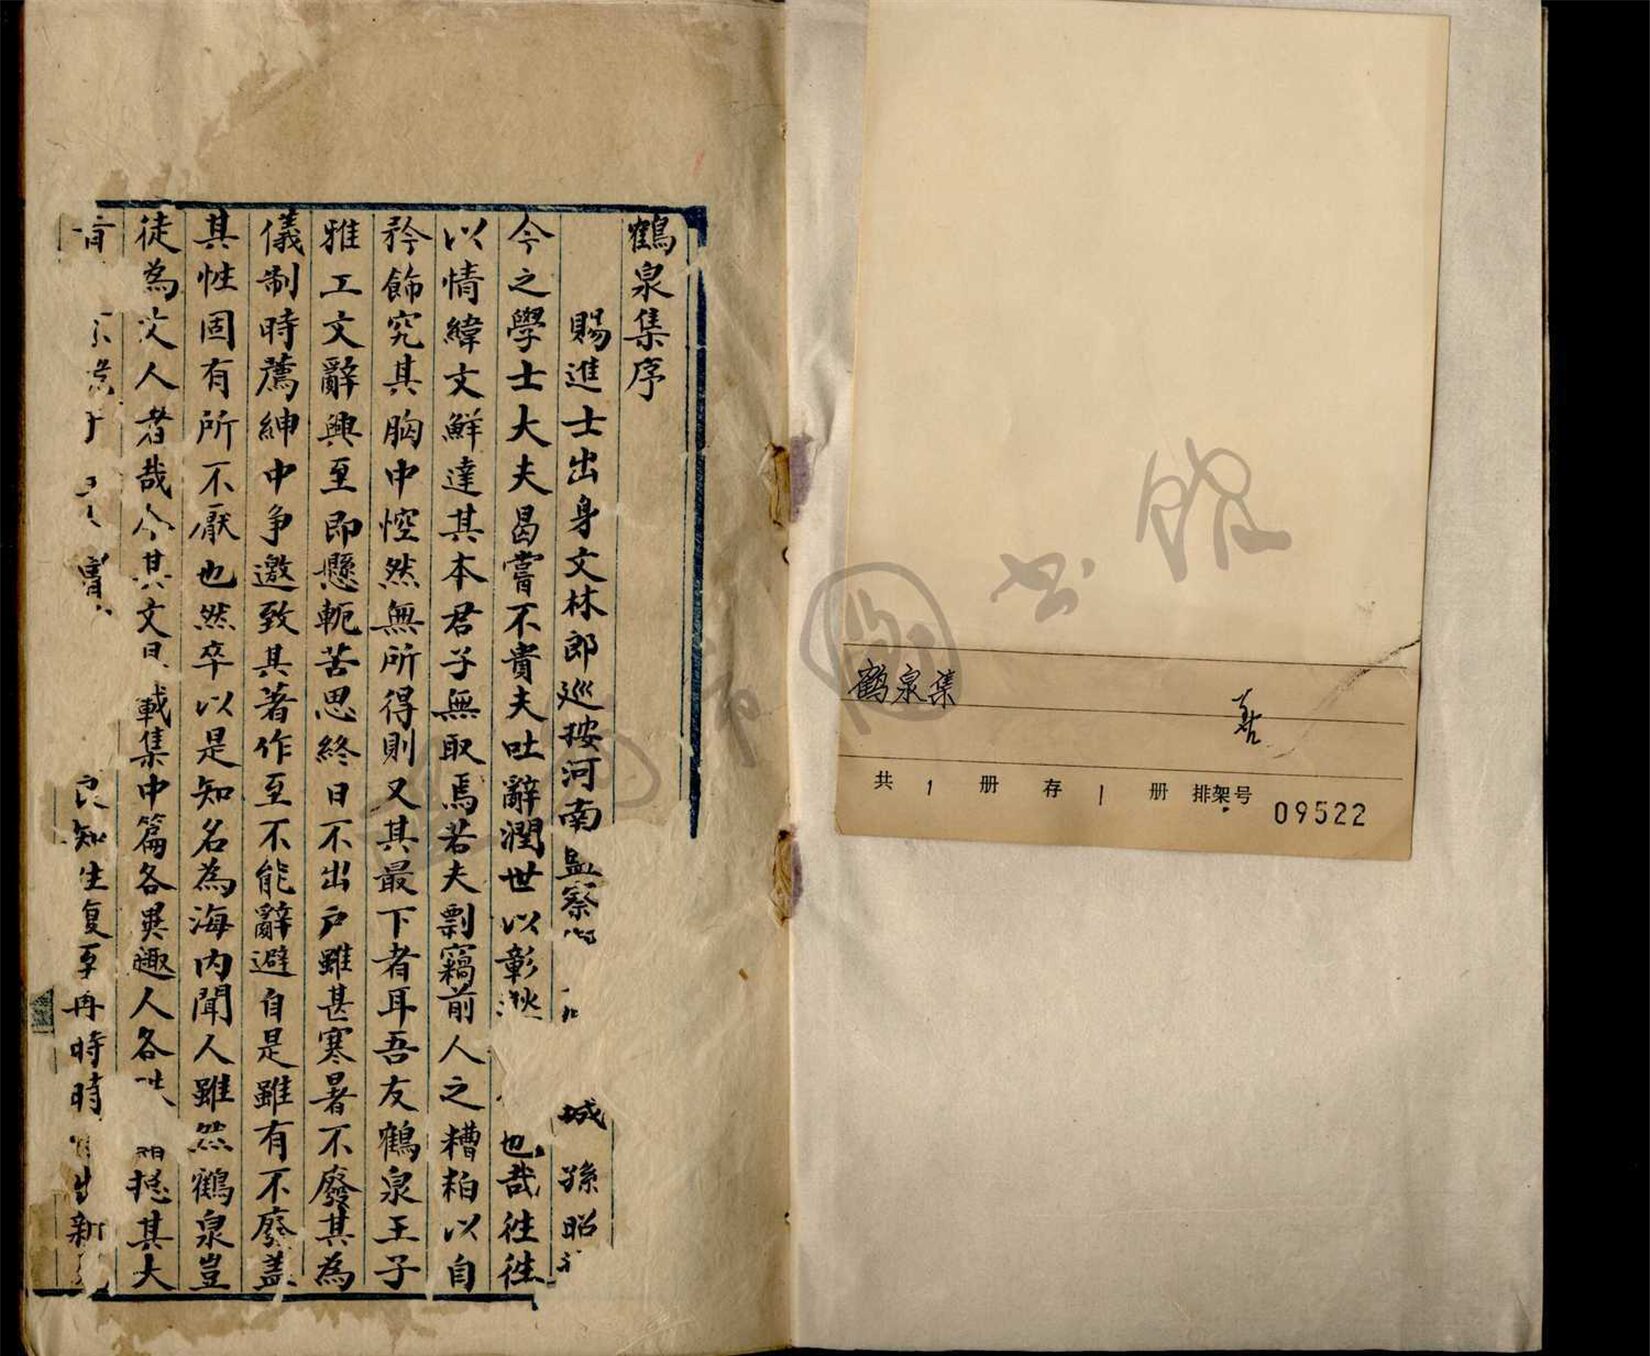 鶴泉集序
賜進士出身文林郎巡按河南監察 城孫昭
今之學士大夫曷嘗不貴夫吐辭潤世以彰 也哉徃徃
以情緯文鮮達其本君子無取焉若夫剽竊前人之糟粕以自
矜飾究其胸中悾然無所得則又其最下者耳吾友鶴泉王子
雅工文辭興至即懸軛苦思終日不出戶雖甚寒暑不廢其為
儀制時薦紳中争邀致其著作至不能辭避自是雖有不廢蓋
其性固有所不厭也然卒以是知名為海内聞人雖然鶴泉豈
徒為文人者哉今其文日載集中篇各異趣人各 揔其大
良知生复至再時時 新
鹤泉集
善
共 1 册 存 1 册 排架号 09522
书馆